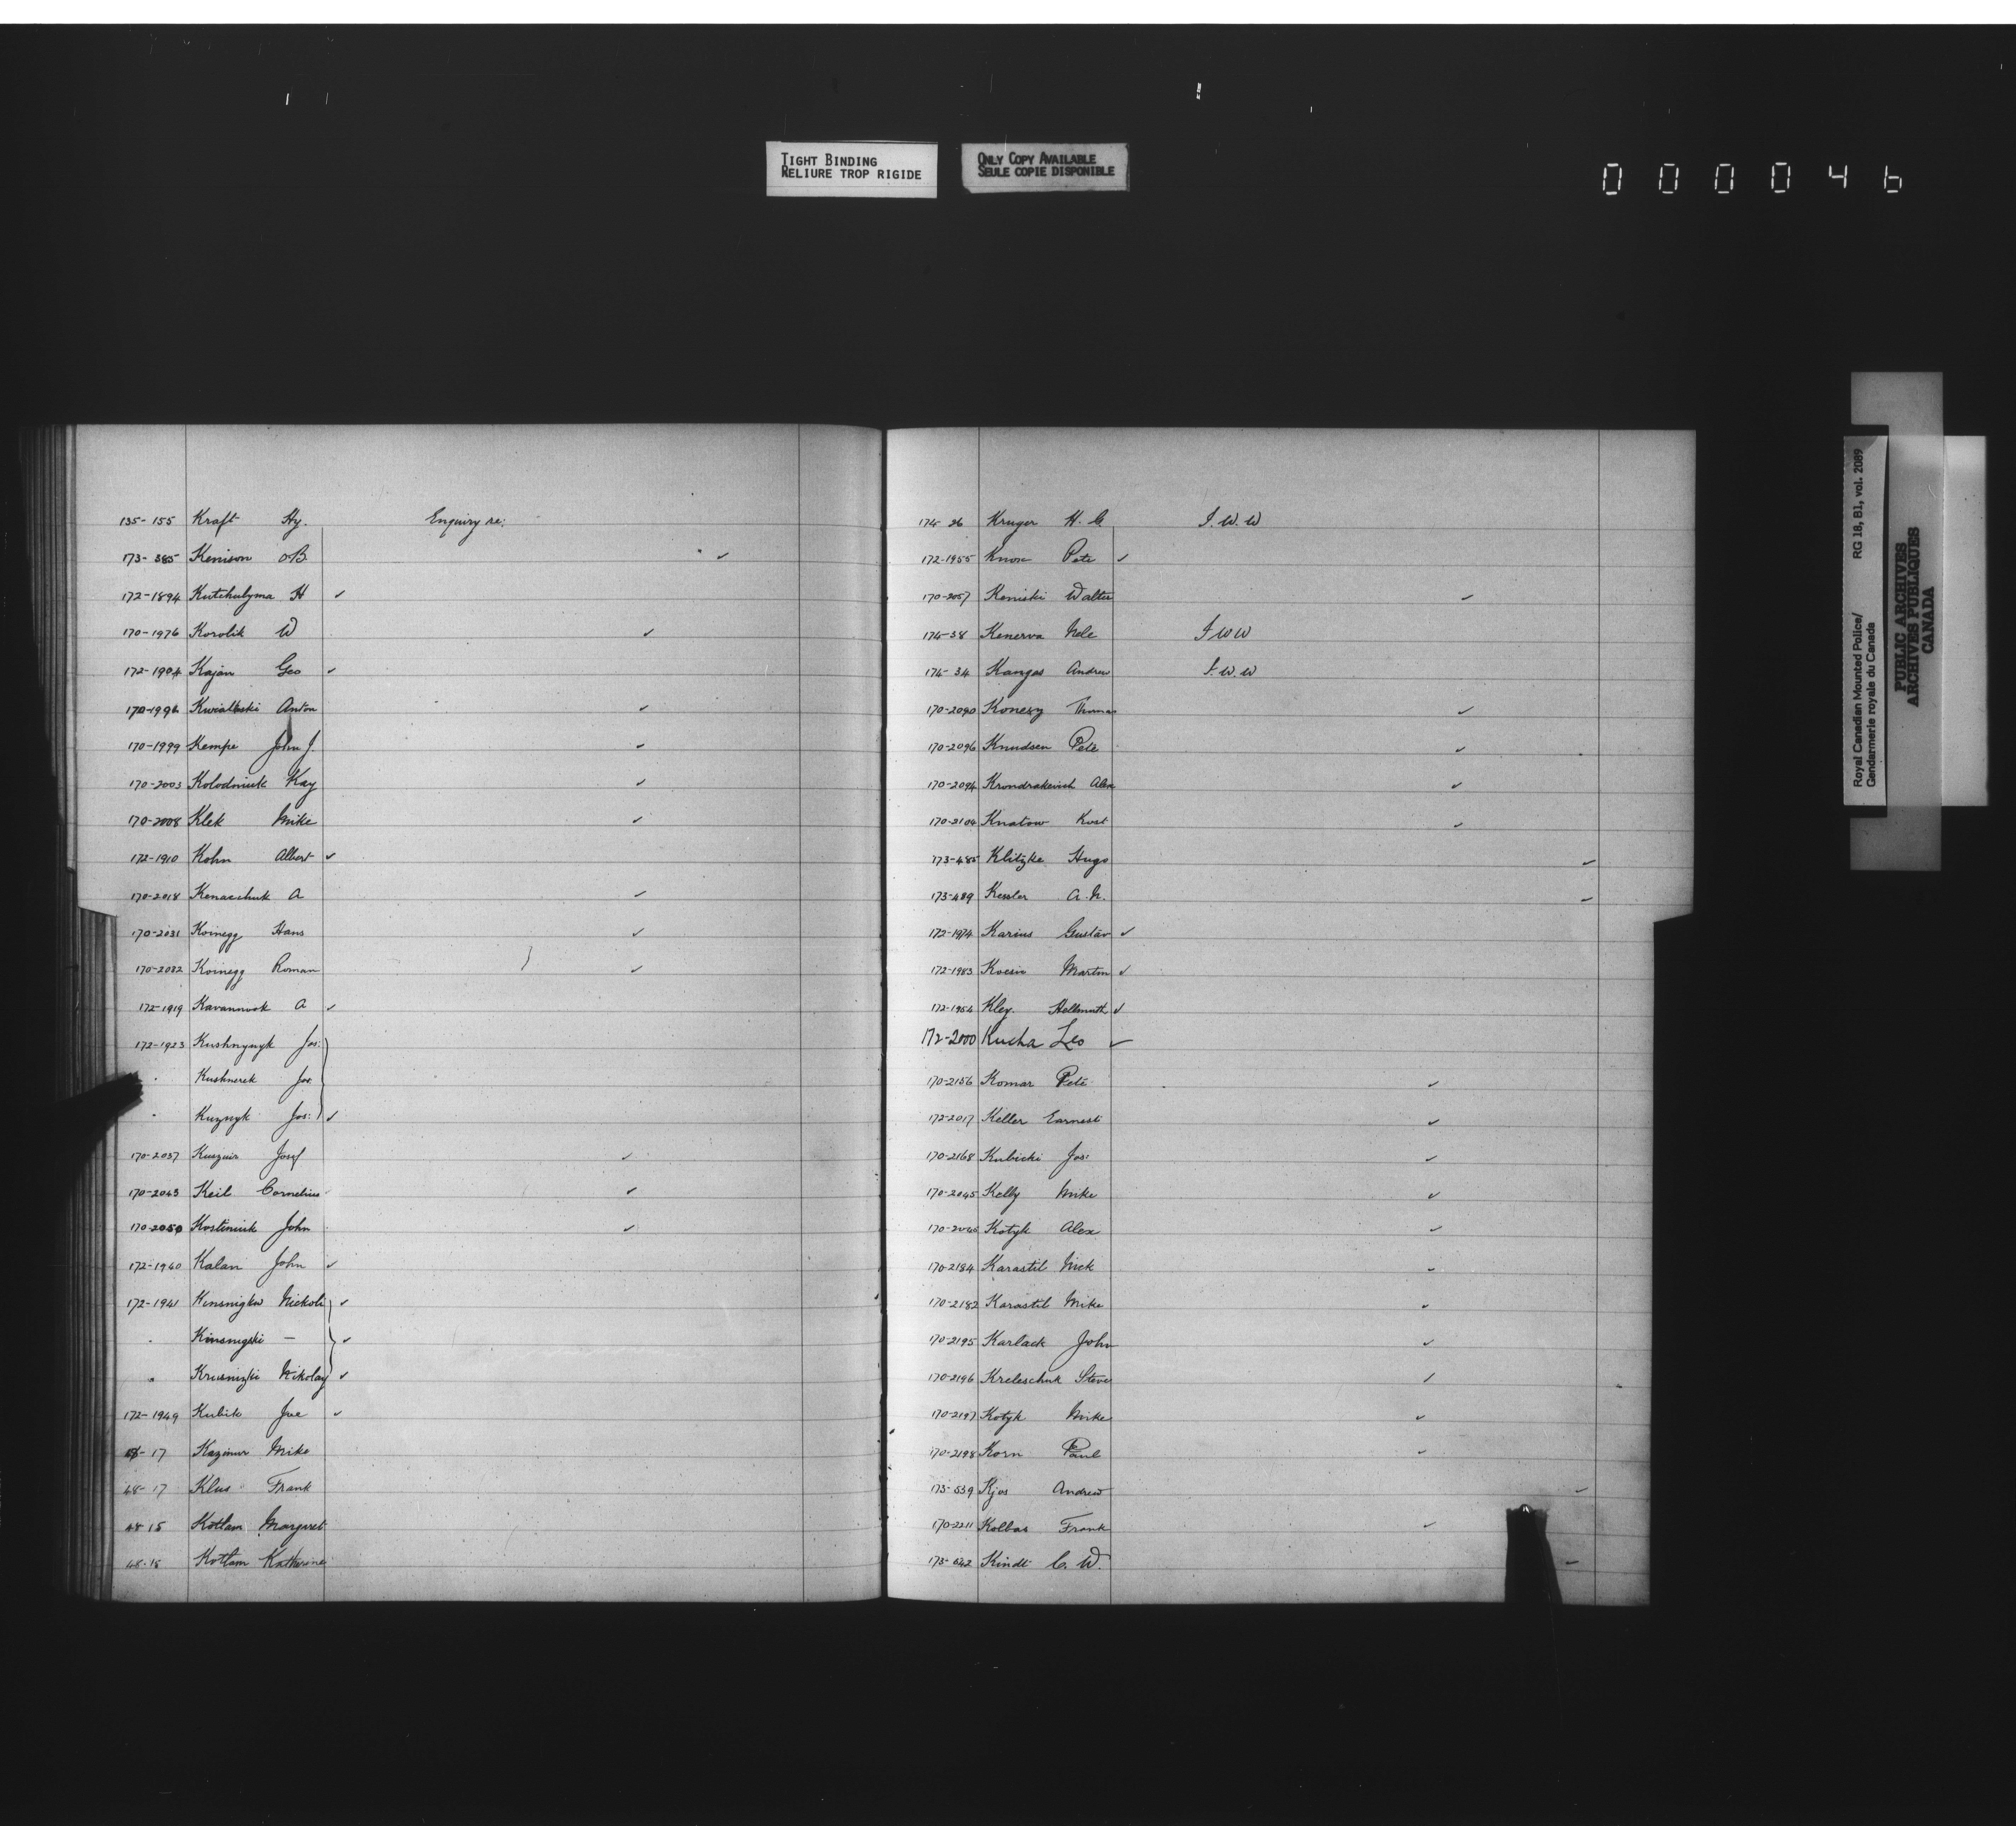 TIGHT BINDING
RELIURE TROP RIGIDE
ONLY COPY AVAILABLE
SEULE COPIE DISPONIBLE
000046
135-155 Kraft Hy. Enquiry re:
173-385 Kenison O.B. ✓
172-1894 Kutchulyma H ✓
170-1976 Korolik W ✓
172-1904 Kajan Geo ✓
170-1996 Kwiatkoski Anton ✓
170-1999 Kempe John J. ✓
170-2003 Kolodniuk Kay ✓
170-2008 Klek Mike ✓
172-1910 Kohn Albert ✓
170-2018 Kenaschuk A ✓
170-2031 Koinegg Hans ✓
170-2032 Koinegg Roman ✓
172-1919 Kavannook A ✓
172-1923 Kushnyryk Jos.
" Kushnerek Jos.
" Kuznyk Jos. ✓
170-2037 Josef ✓
170-2043 Keil Cornelius ✓
170-2050 Kostiniuk John ✓
172-1940 Kalan John ✓
172-1941 Nickoli ✓
" Kinsnigski — ✓
" Krusnizki Nikolay ✓
172-1949 Kubik Joe ✓
17 Kazimir Mike
48-17 Klus Frank
48-15 Kotlam Margaret
48-15 Kotlam Katherine
174-26 Kruger H. C. I. W. W
172-1955 Knox Pete ✓
170-2057 Keniski Walter ✓
174-38 Kenerva Nele I W W
174-34 Kangas Andrew I. W. W
170-2090 Thomas ✓
170-2096 Knudsen Pete ✓
170-2094 Krondrakevich Alex ✓
170-2104 Knatow Kost ✓
173-485 Klitzke Hugo ✓
173-489 Kessler A. N. ✓
172-1974 Karius Gustav ✓
172-1983 Martin ✓
172-1954 Kley. Hellmuth ✓
172-2000 Kucha Leo ✓
170-2156 Komar Pete ✓
172-2017 Keller Earnest ✓
170-2168 Kubicki Jos. ✓
170-2045 Kelly Mike ✓
Kotyk Alex ✓
170-2184 Karastil Nick ✓
170-2182 Karastil Mike ✓
170-2195 Karlack John ✓
170-2196 Kreleschuk Steve ✓
170-2197 Kotyk Mike ✓
170-2198 Korn Paul ✓
173-539 Kjos Andrew ✓
170-2211 Kolbas Frank ✓
173-542 Kindt C. W. ✓
Royal Canadian Mounted Police/ RG 18, B1, vol. 2089
Gendarmerie royale du Canada
PUBLIC ARCHIVES
ARCHIVES PUBLIQUES
CANADA